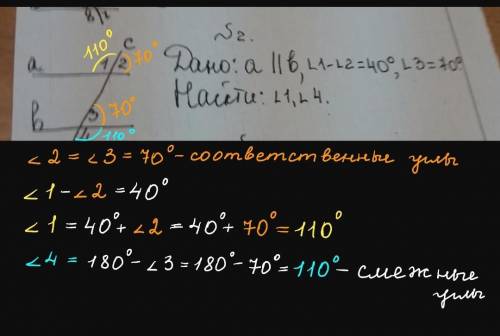 в/с
№2.
110° c
a 1 2 70°
Дано: a || b, ∠1-∠2=40°, ∠3=70°
b 3 70°
Найти: ∠1, ∠4.
4 110°
∠2 = ∠3 = 70° - соответственные углы
∠1 - ∠2 = 40°
∠1 = 40° + ∠2 = 40° + 70° = 110°
∠4 = 180° - ∠3 = 180° - 70° = 110° - смежные
углы